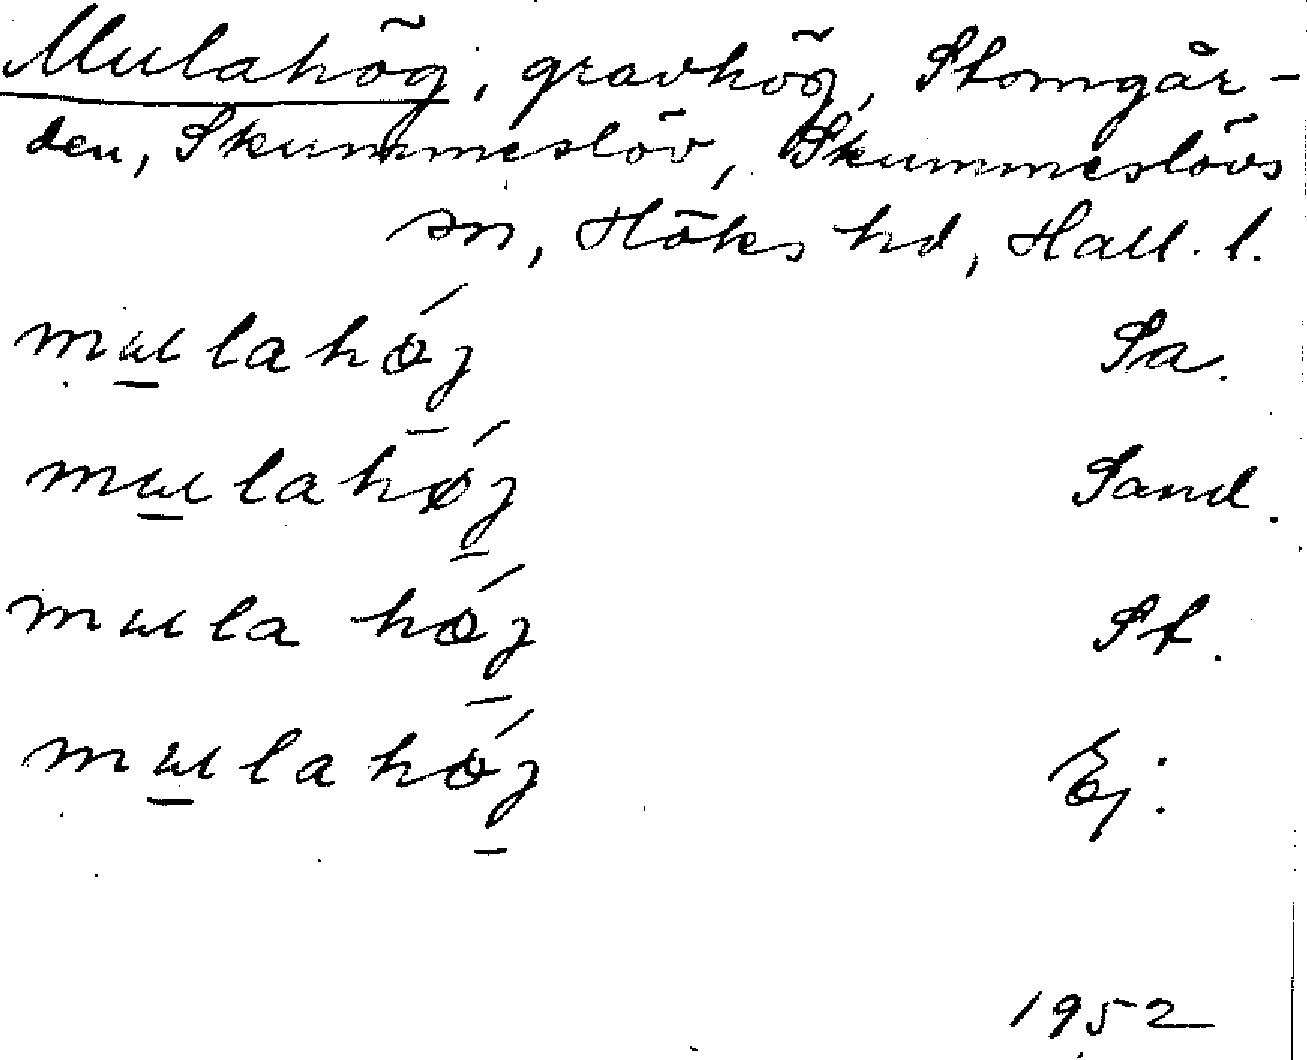 Mulahög, gravhög, Stomgår-
den, Skummeslöv, Skummeslövs
sn, Höks hd, Hall. l.
mɯlahǿj Sa.
mɯlahǿj Sand.
mɯla hǿj St.
mɯlahǿj Ej.
1952